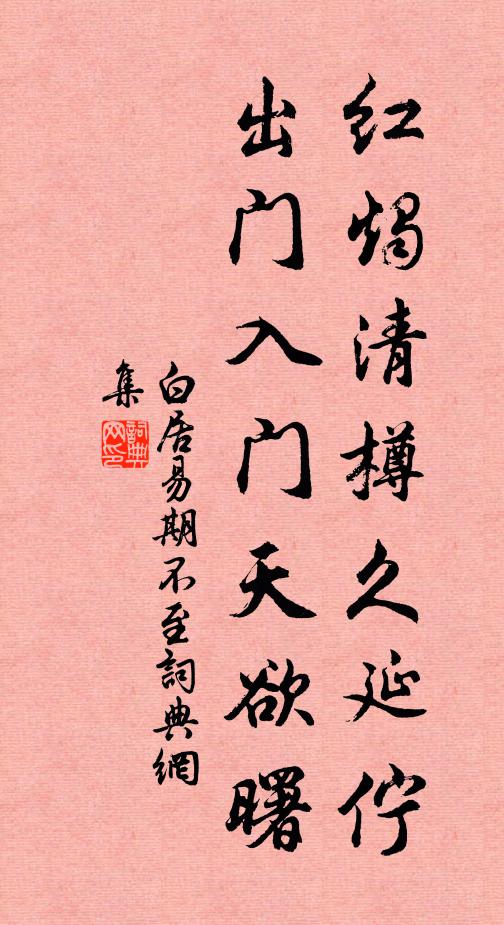 红烛清樽久延佇
出门入门天欲曙
白居易期不至詞典網
集
詞典网印